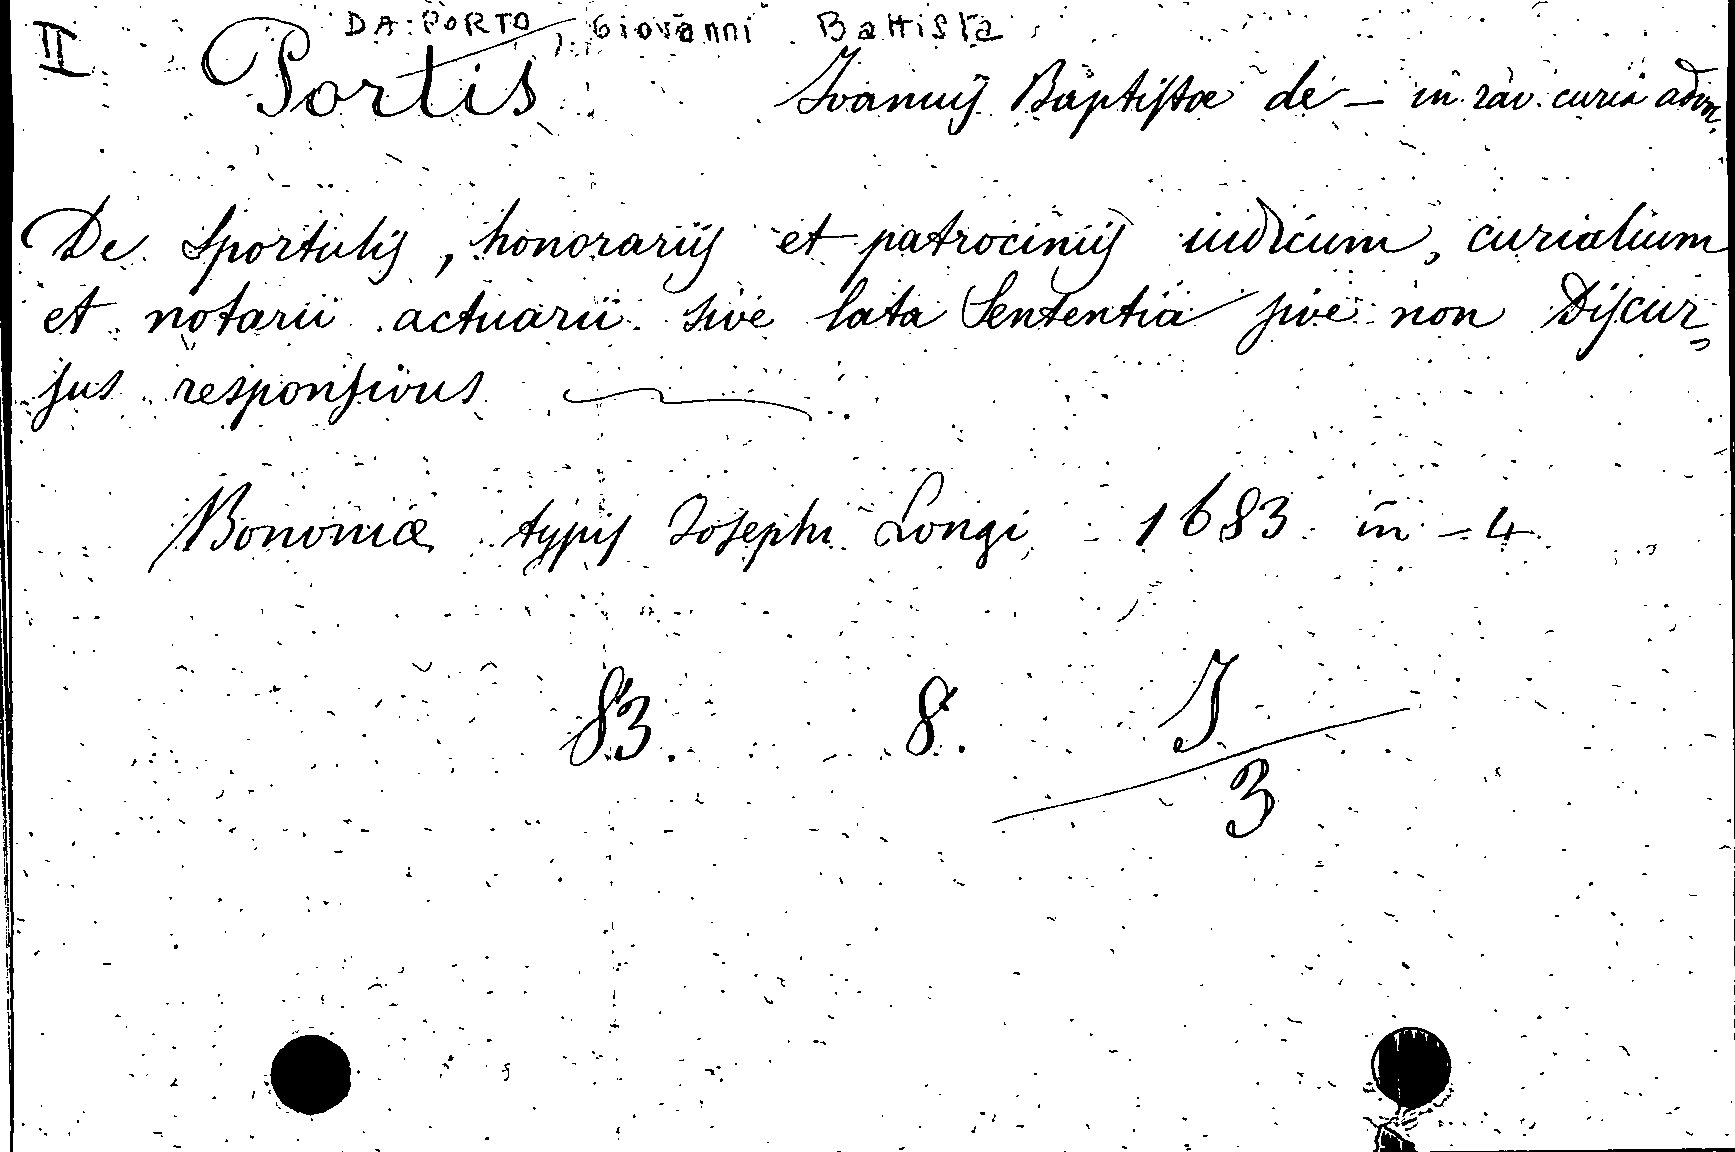 II DA PORTO, Giovanni Battista
Portis Ioannis Baptistæ de — in rav. curia advoc.
De sportulis, honorariis et patrociniis iudicum, curialium
et notarii actuarii sive lata sententia sive non Discur„
sus responsivus
Bononiæ typis Iosephi Longi 1683 in-4
83. 8. I
3